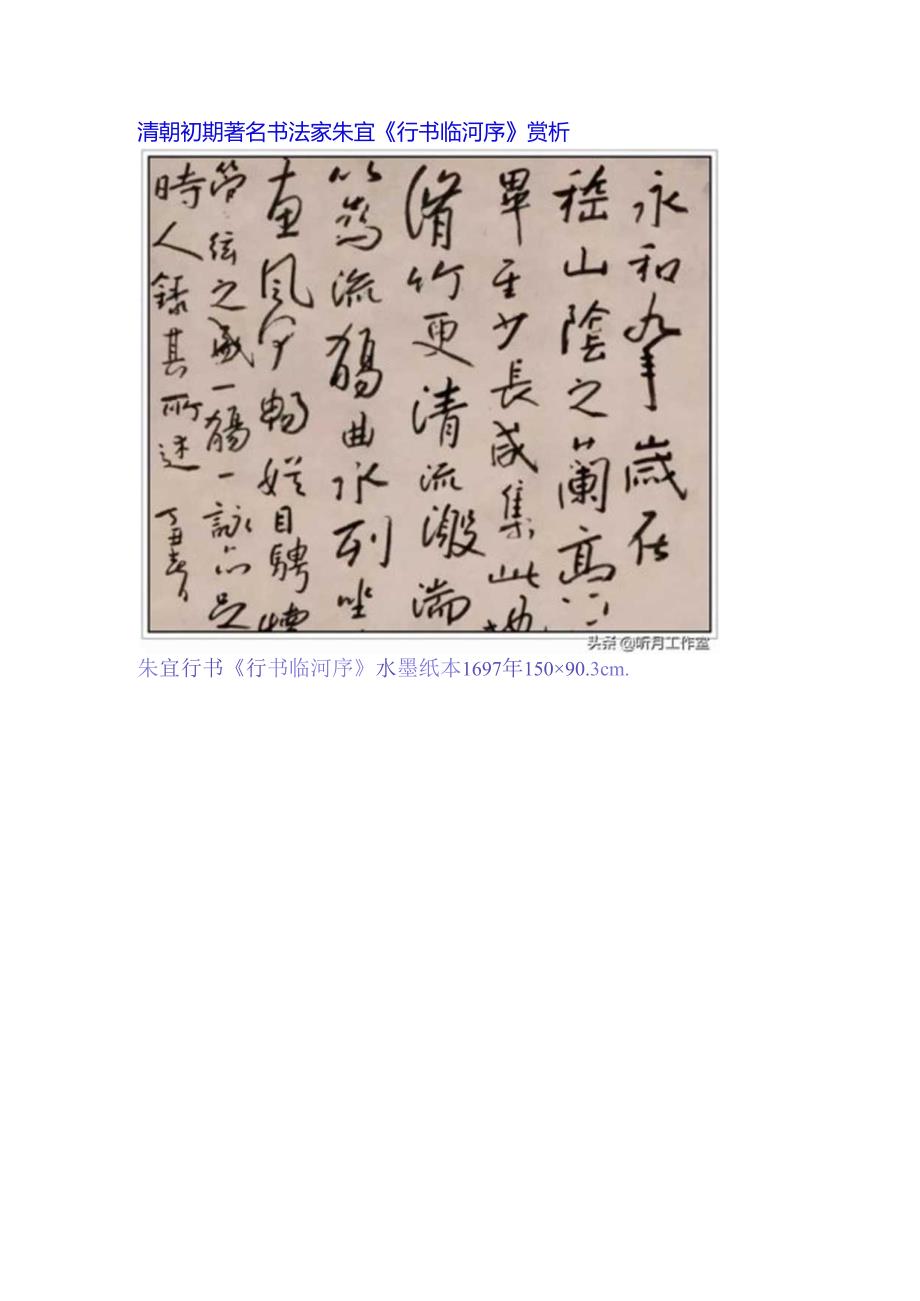 清朝初期著名书法家朱宜《行书临河序》赏析
永和九年歲在
稽山陰之蘭亭
畢至少長咸集此地
脩竹更清流激湍
以為流觴曲水列坐
惠風和暢娛目騁懷
管弦之盛一觴一詠亦足
時人錄其所述 丁丑春日
头条 @听月工作室
朱宜行书《行书临河序》水墨纸本1697年150×90.3cm.